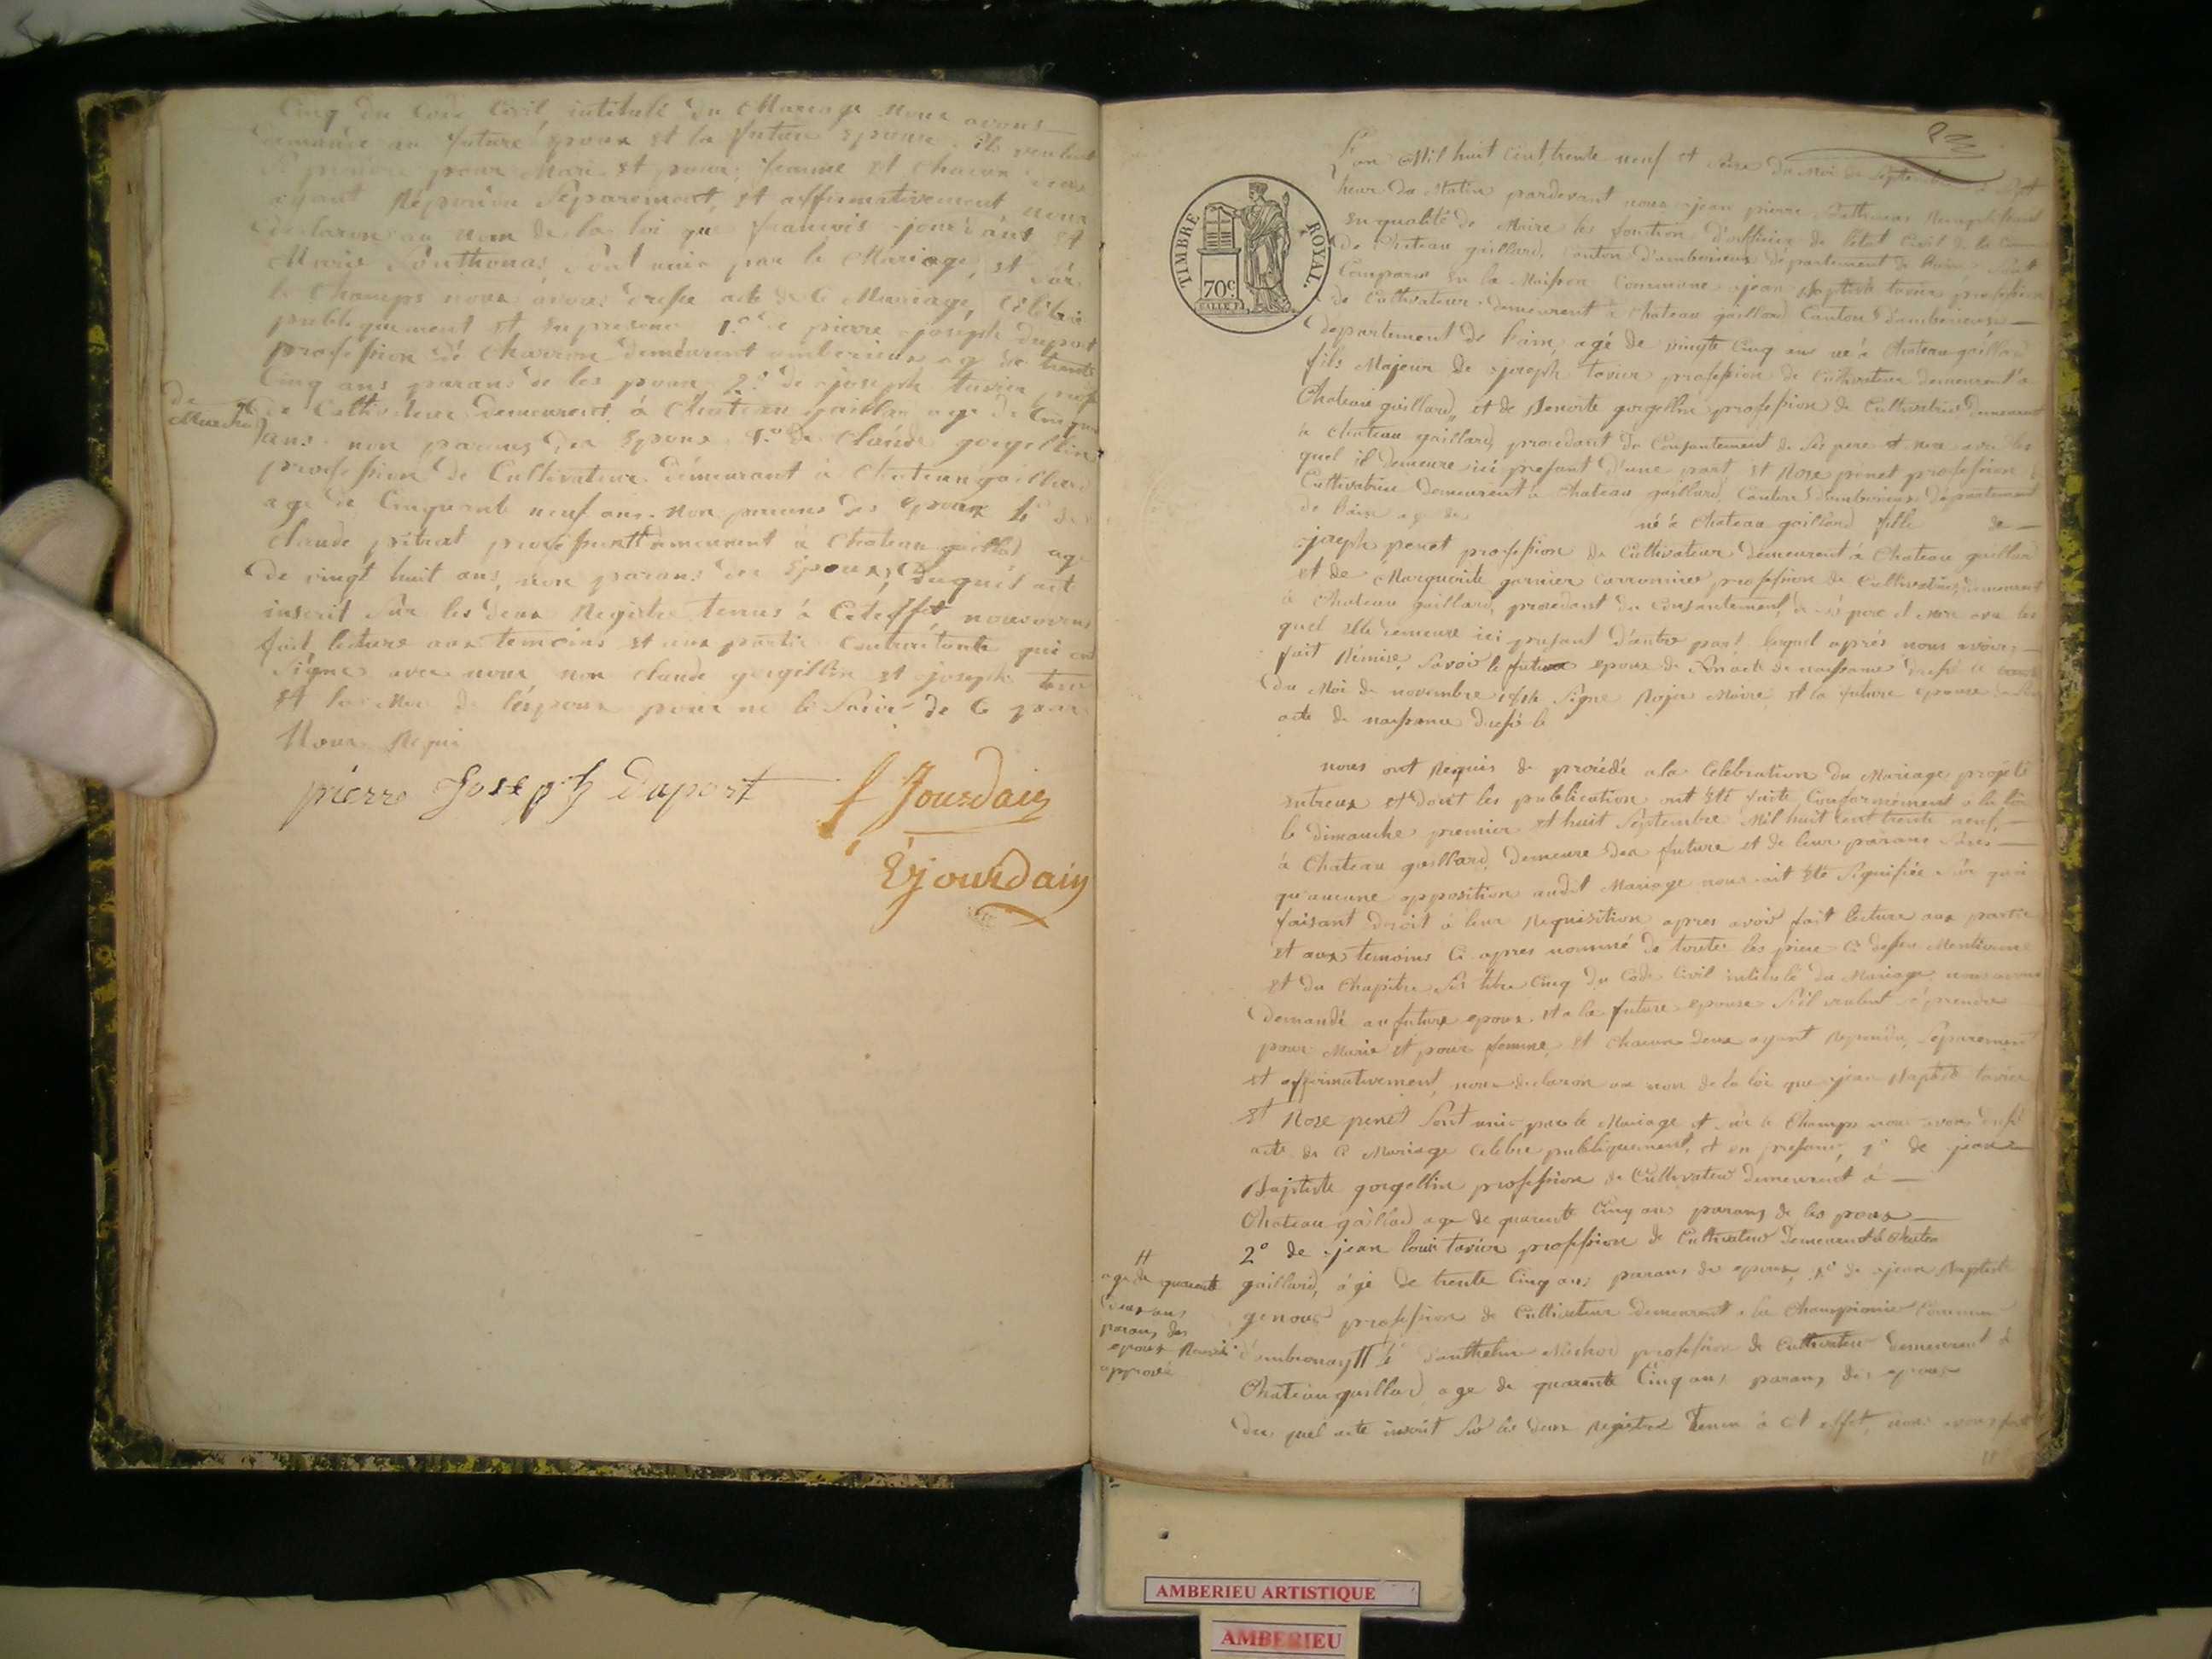 Cinq du Code Civil, intitulé du Mariage nous avons
demandé au future epoux et la future epouse ils veulent
pour Mari et pour femme et chacun deux
ayant Répondu Séparement, et affirmativement nous
declaron au nom de la loi que francois jourdant et
Marie Sonthonas Sont unis par le Mariage, et Sur
le Champs nous avons dressé acte de ce Mariage, Célébré
publiquement et en presence 1.º de pierre joseph duport
profession de Charron demeurent amberieux age de trente
Cinq ans parans de les poux 2.º de joseph tavier
de
Cultivateur demeurent à Chateau gaillar age de Cinqu
ans non parans des Epoux de Claude gorgellin
profession de Cultivateur demeurant à Chateaugaillard
age de Cinquante neuf ans. Non parans des epoux 4º de
Claude pitrat profession demeurent à Chateau gaillard age
de vingt huit ans, non parans des Epoux, Duquel act
inscrit Sur les deux Registre tenus à Cet efft, nousavons
fait lecture aux temoins et aux partie Contractante qui ont
Signé avec nous non Claude gorgellin et joseph
et la Mere de lépoux pour ne le Savoir de Ce
Nous Requi
pierre Joseph Duport
f Jourdain
Ejourdain
TIMBRE ROYAL.
70c
L'an Mil huit Cent trente neuf et du Moi de Septembre à Sept
heur du Matin pardevant nous jean pierre
en qualité de Maire les fonction d'officier de l'etat Civil de la Com
de Chateau gaillard, Canton d'amberieux departement de
Comparus en la Maison Commune jean Baptiste tavier profession
de Cultivateur demeurent à Chateau gaillard Canton d'amberieux
departement de Lain, agé de vingte Cinq ans né à Chateau gaillard
fils Majeur de joseph tavier profession de Cultivateur demeurent à
Chateau gaillard, et de Benoite gorgellin profession de Cultivatrice demeurent
à Chateau gaillard, procedant du Consantement de Ses pere et mere avec les
quel il demeure ici presant d'une part et Rose penet profession
Cultivatrice demeurent à Chateau gaillard, Canton d'amberieux departement
de Lain age de né à Chateau gaillard fille de
joseph penet profession de Cultivateur demeurent à Chateau gaillard
et de Marguerite garnier profession de Cultivatrice, demeurent
à Chateau gaillard, procedant du Consantement, de ses pere et mere avec les
quel elle demeure ici presant d'autre part lequel après nous avoir
fait Remise, Savoir le future epoux de Son acte de naissance dressé le
du Moi de novembre 1814 Signe Rojer Maire et la future epouse de Son
acte de naissance dressé le
nous ont Requis de procédé a la Celebration du Mariage projeté
entreux et dont les publication ont été faite Conformement a la loi
le dimanche premier et huit Septembre Mil huit Cent trente neuf,
à Chateau gaillard demeure des future et de leur parans Sans
qu'aucune opposition audit Mariage nous ait été Signifiée
faisant droit à leur Requisition apres avoir fait lecture aux partie
et aux temoins Ci apres nommé de toute les piece Ci dessus Mentionné
et du Chapitre Six titre Cinq du Code Civil intitulé du Mariage nous avons
demandé au future epoux et a la future epouse S'il veulent
pour Marie et pour femme, et chacun deux ayant Repondu, Séparement
et affirmativement, nous declaron au non de la loi que jean Baptiste tavier
et Rose penet Sont unis par le Mariage et Sur le Champs nous avons dressé
acte de Ce Mariage Célébré publiquement, et en presance, 1º de jean
Baptiste gorgellin profession de Cultivateur demeurent à
Chateau gaillard age de quarente Cinq ans parans de les poux
2º de jean louis tavier profession de Cultivateur demeurent à Chateau
gaillard, âgé de trente Cinq ans parans des epoux de jean Baptiste
genoud profession de Cultivateur demeurent a la Championier Commune
d'ambronay H 4º danthelme Michod profession de Cultivateur demeurent à
Chateau gaillard age de quarente Cinq ans, parans des epoux
du quel acte inscrit Sur les deux Registre tenus à Cet effet, nous avons fait
H
age de quarente
deux ans
parans des
epoux
approuvé
AMBERIEU ARTISTIQUE
AMBERIEU